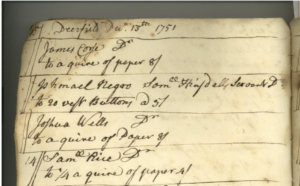 Deerfield Decr. 13th 1751
James Corse Dr
to a quire of paper 8/
Ishmael Negro Samll Hinsdell, Servant Dr
to 20 vest Buttons a 5/
Joshua Wells Dr
to a quire of Paper 8/
14 Samll Rice Dr
to 1/4 a quire of paper 4/